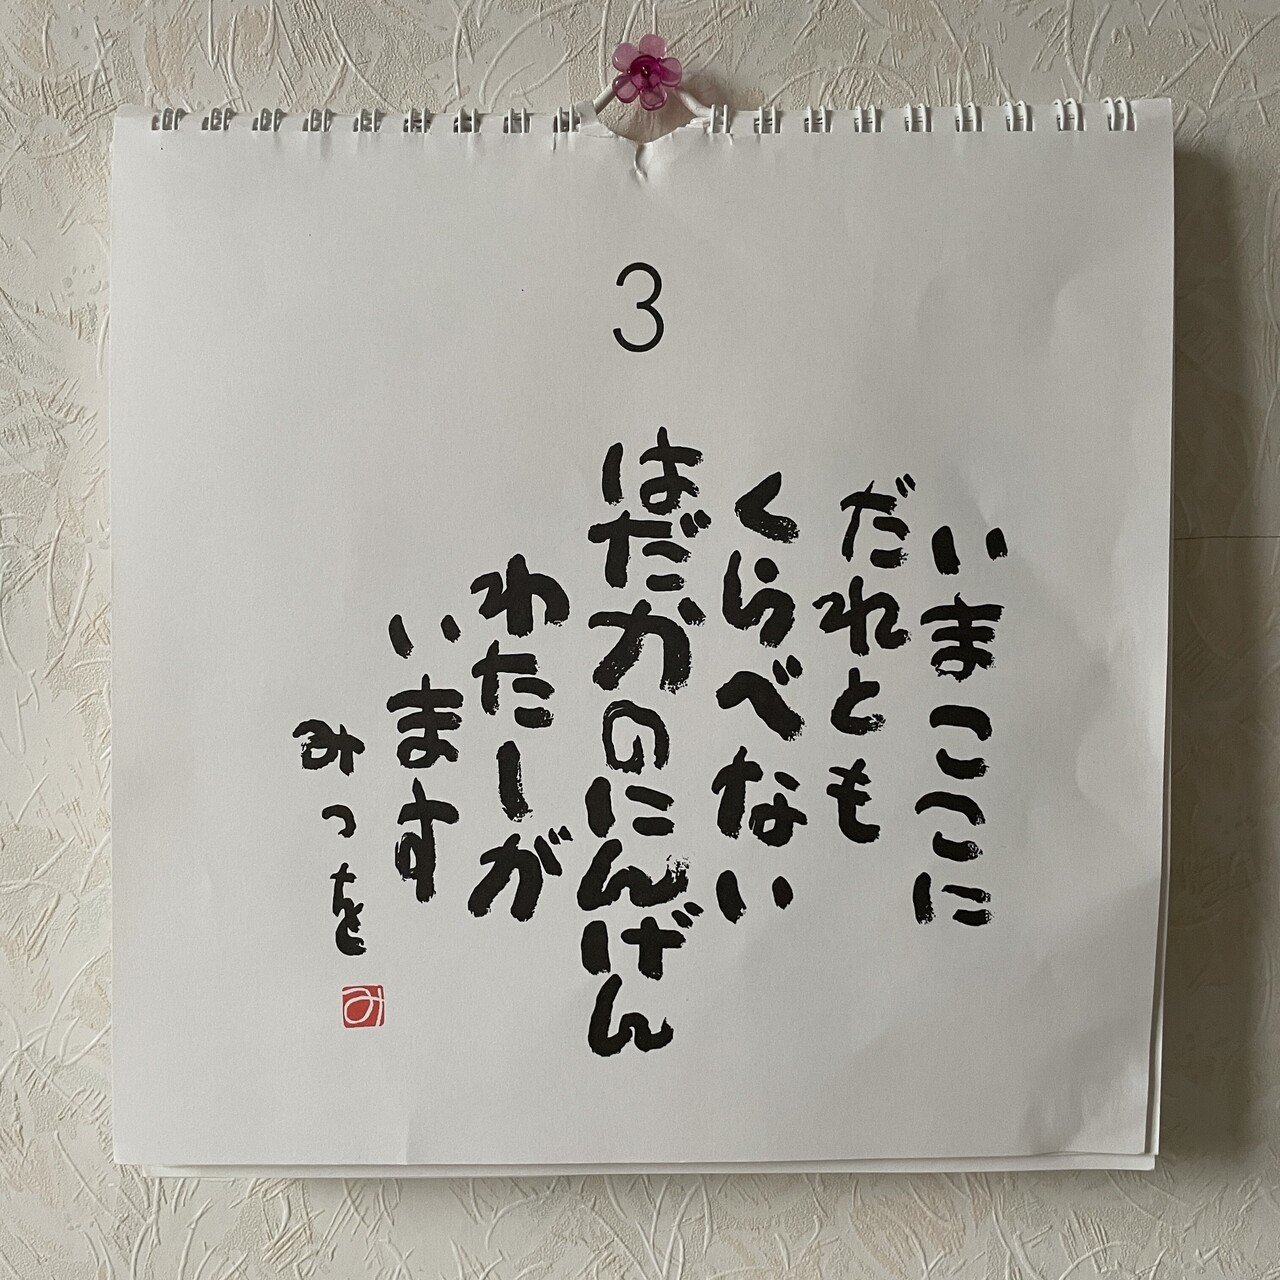 3
いまここに
だれとも
くらべない
はだかのにんげん
わたしが
います
みつを
み